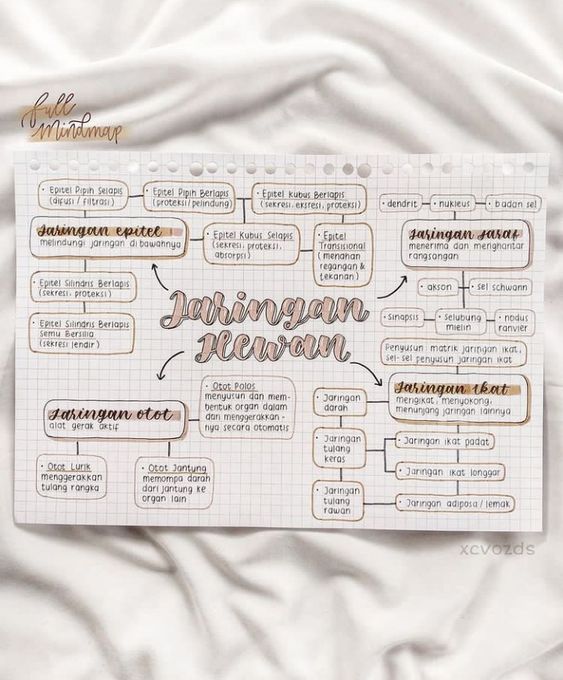 full
mindmap
• Epitel Pipih Selapis
(difusi / filtrasi)
• Epitel Pipih Berlapis
(proteksi / pelindung)
• Epitel Kubus Berlapis
(sekresi, eksresi, proteksi)
Jaringan epitel
melindungi jaringan di bawahnya
• Epitel Kubus Selapis
(sekresi, proteksi,
absorpsi)
• Epitel
Transisional
(menahan
regangan &
tekanan)
• Epitel Silindris Berlapis
(sekresi, proteksi)
• Epitel Silindris Berlapis
Semu Bersilia
(sekresi lendir)
• dendrit
• nukleus
• badan sel
Jaringan Saraf
menerima dan menghantar
rangsangan
• akson
• sel schwann
• sinapsis
• selubung
mielin
• nodus
ranvier
Jaringan
Hewan
Jaringan otot
alat gerak aktif
• Otot Polos
menyusun dan mem-
bentuk organ dalam
dan menggerakkan -
nya secara otomatis
• Otot Lurik
menggerakkan
tulang rangka
• Otot Jantung
memompa darah
dari jantung ke
organ lain
Penyusun: matrik jaringan ikat,
sel-sel penyusun jaringan ikat
Jaringan Ikat
mengikat, menyokong,
menunjang jaringan lainnya
• Jaringan
darah
• Jaringan
tulang
keras
• Jaringan
tulang
rawan
• Jaringan ikat padat
• Jaringan ikat longgar
• Jaringan adiposa / lemak
xcvozds